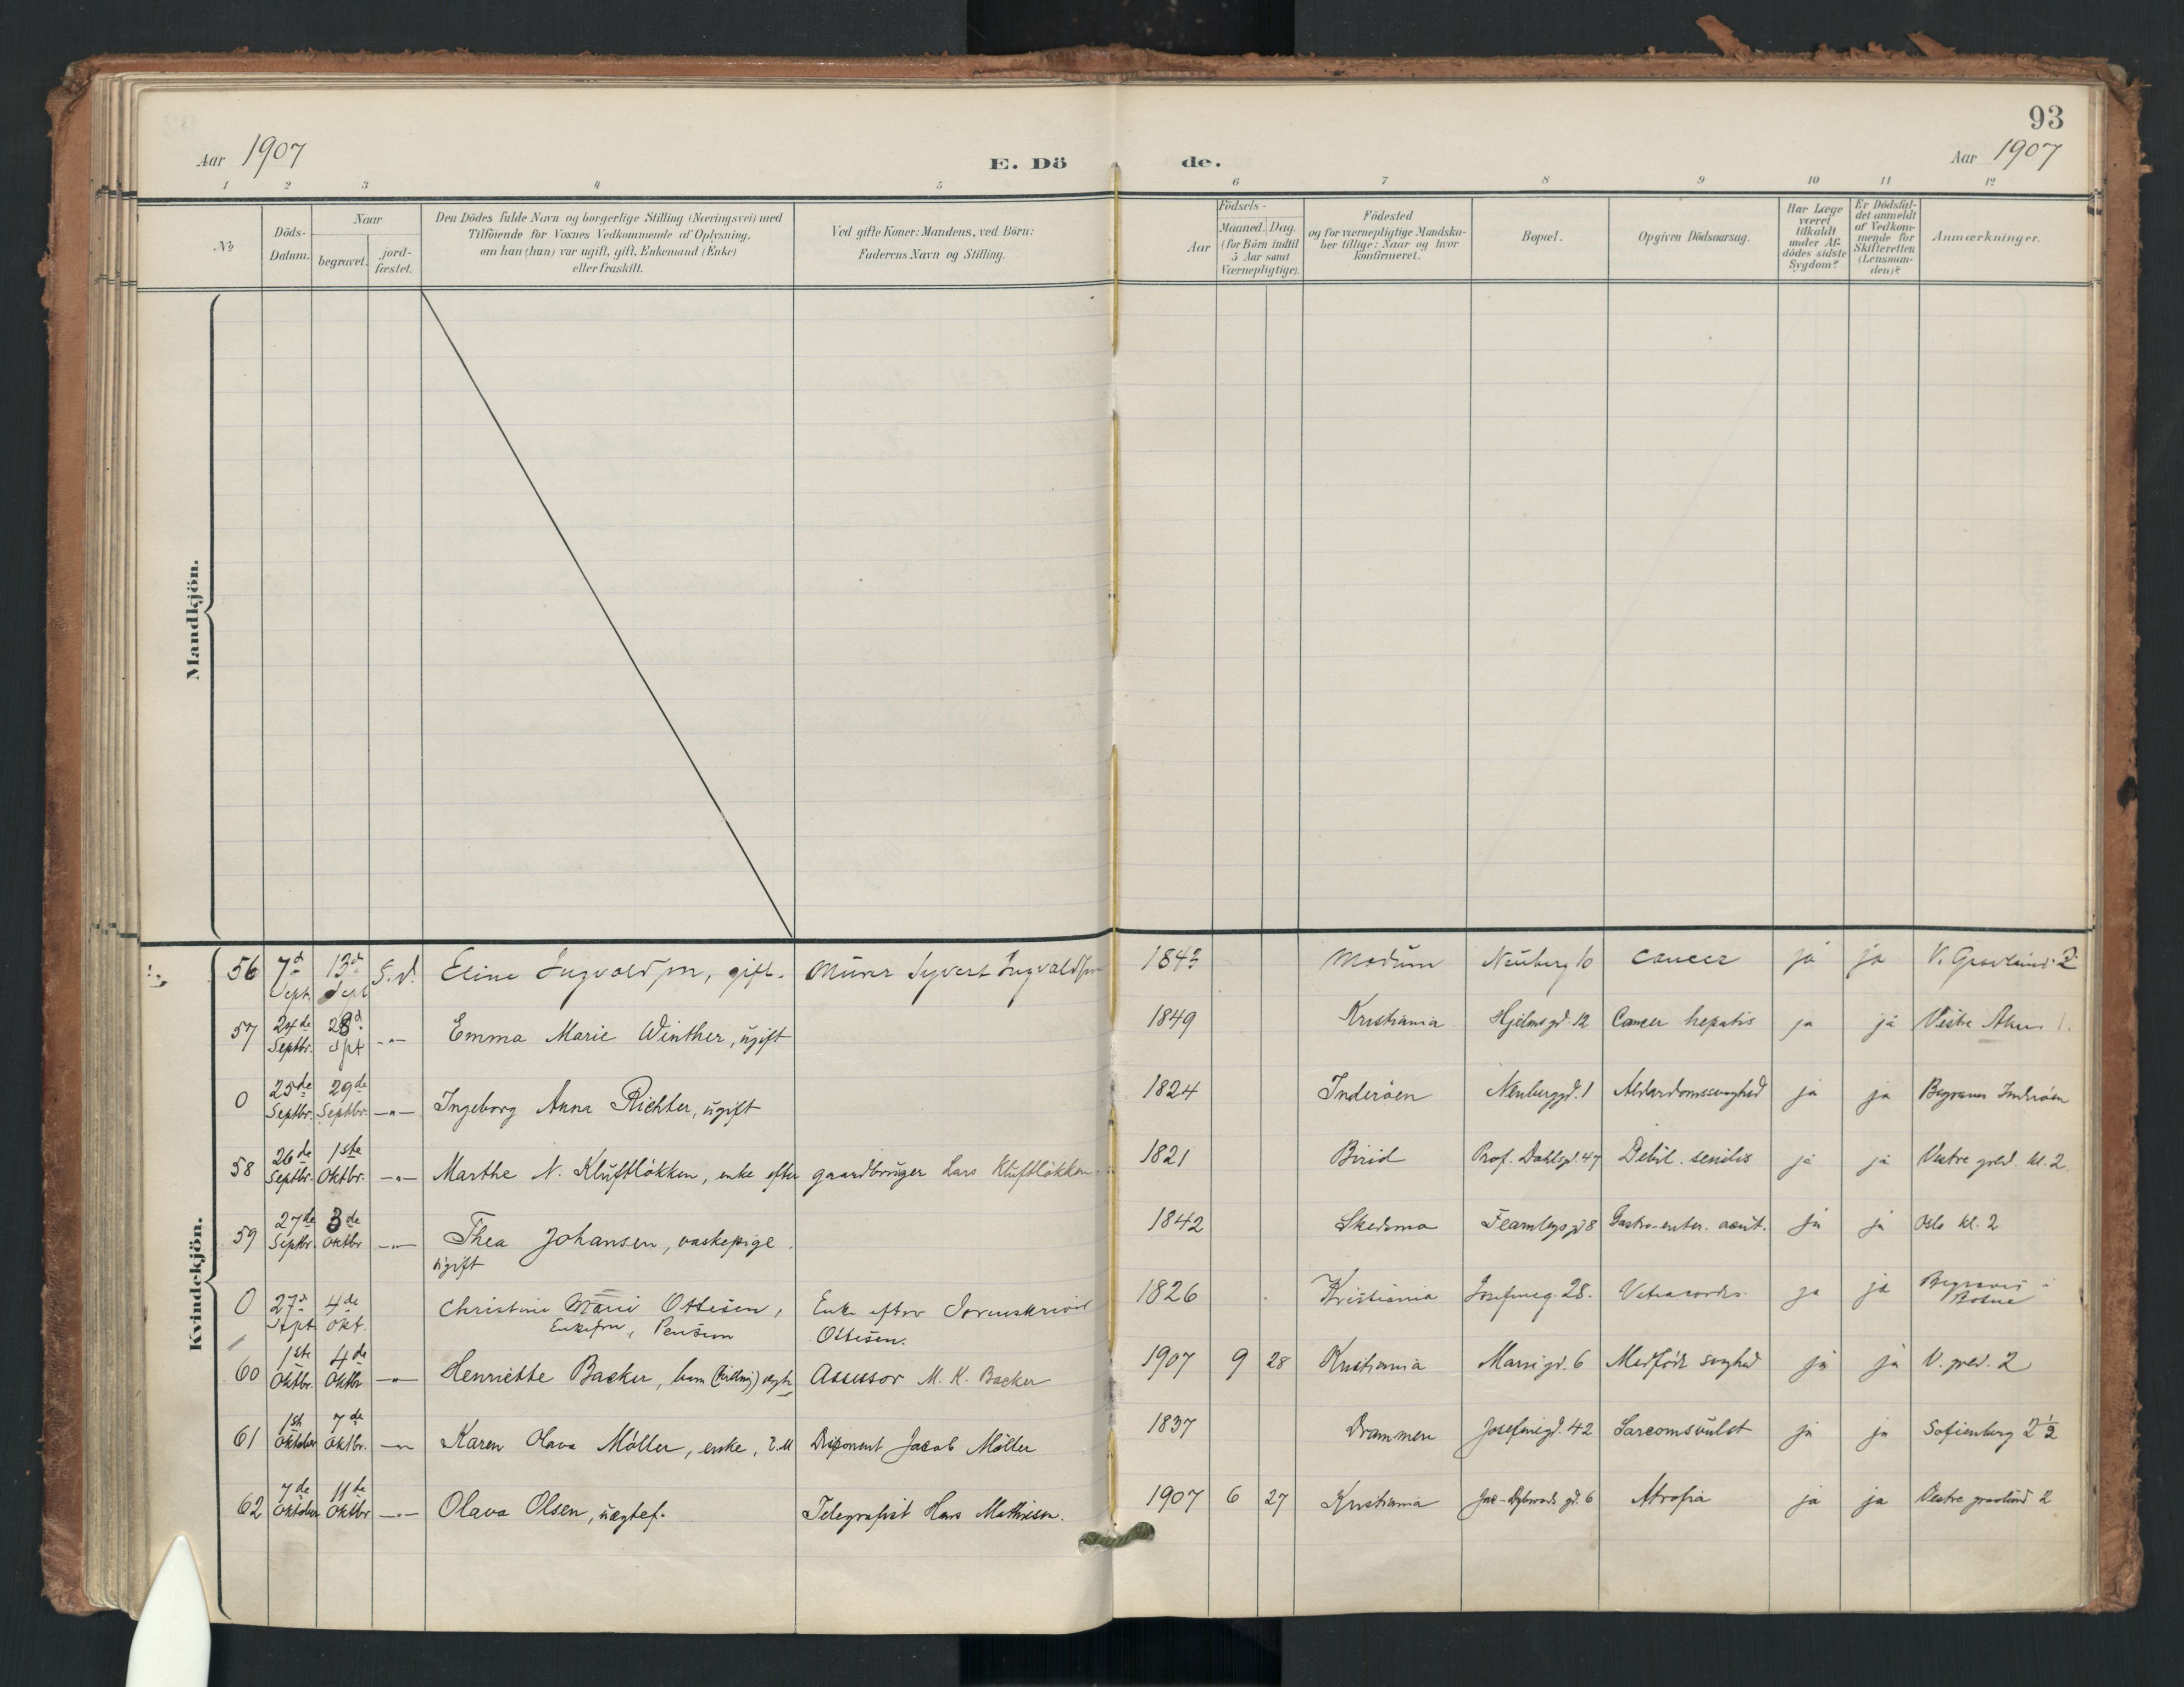 93
Aar 1907
E. Dö de.
Aar 1907
1 2 3 4 5 6 7 8 9 10 11 12
No
Döds-Datum.
Naar
begravet.
jord-fæstet.
Den Dödes fulde Navn og borgerlige Stilling (Næringsvei) med
Tilföiende for Voxnes Vedkommende af Oplysning,
om han (hun) var ugift, gift, Enkemand (Enke)
eller fraskilt.
Ved gifte Koner: Mandens, ved Börn:
Faderens Navn og Stilling.
Födsels-
Aar
Maaned. Dag.
(for Börn indtil
5 Aar samt
Værnepligtige).
Födested
og for værnepligtige Mandska-
ber tillige: Naar og hvor
konfirmeret.
Bopæl.
Opgiven Dödsaarsag.
Har Læge
været
tilkaldt
under Af-
dödes sidste
Sygdom?
Er Dödsfal-
det anmeldt
af Vedkom-
mende for
Skifteretten
(Lensman-
den)?
Anmærkninger.
Mandkjön.
Kvindekjön.
56 7d Sept. 13d Sept S. V. Eline Ingvaldsen, gift. Murer Syvert Ingvaldsen 1843 Modum Neuberg 10 Cancer ja ja V. Gravlund 2
57 24de Septbr. 28d Spt -"- Emma Marie Winther, ugift 1849 Kristiania Hjelmsgd. 12 Cancer hepatis ja ja Vestre Aker 1.
0 25de Septbr. 29de Septbr. -"- Ingeborg Anna Richter, ugift 1824 Inderöen Neuberggd. 1 Alderdomssvaghed ja ja Begraves Inderöen
58 26de Septbr. 1ste Oktbr. -"- Marthe N. Kluftlökken, enke efter gaardbruger Lars Kluftlökken 1821 Birid Prof. Dahlsgd. 47 Debil. senilis ja ja Vestre gravl. kl. 2.
59 27de Septbr 3de Oktbr -"- Thea Johansen, vaskepige 1842 Skedsmo Fearnleysgd 8 Gastro-enter. acut. ja ja Oslo kl. 2
ugift
0 27d Sept. 4de Okt. Christine Marie Ottesen, Enke efter Sorenskriver 1826 Kristiania Josefinesg. 28. ja ja Begraves
Enkefru, Pension Ottesen.
60 1ste Oktbr. 4de Oktbr -"- Henriette Backer, barn Assessor M. K. Backer 1907 9 28 Kristiania 6 Medfödt svaghed ja ja V. gravl. 2
61 1ste Oktober 7de Oktbr. -"- Karen Olava Möller, enke, Disponent Jacob Möller 1837 Drammen Josefinesgd. 42 Sarcomsvulst ja ja Sofienberg 2 1/2
62 7de Oktober 11te Oktbr -"- Olava Olsen, uægtef. Telegrafist Hans Mathisen. 1907 6 27 Kristiania Jac-Dybwads gd. 6 Atrofia ja ja Vestre gravlund 2